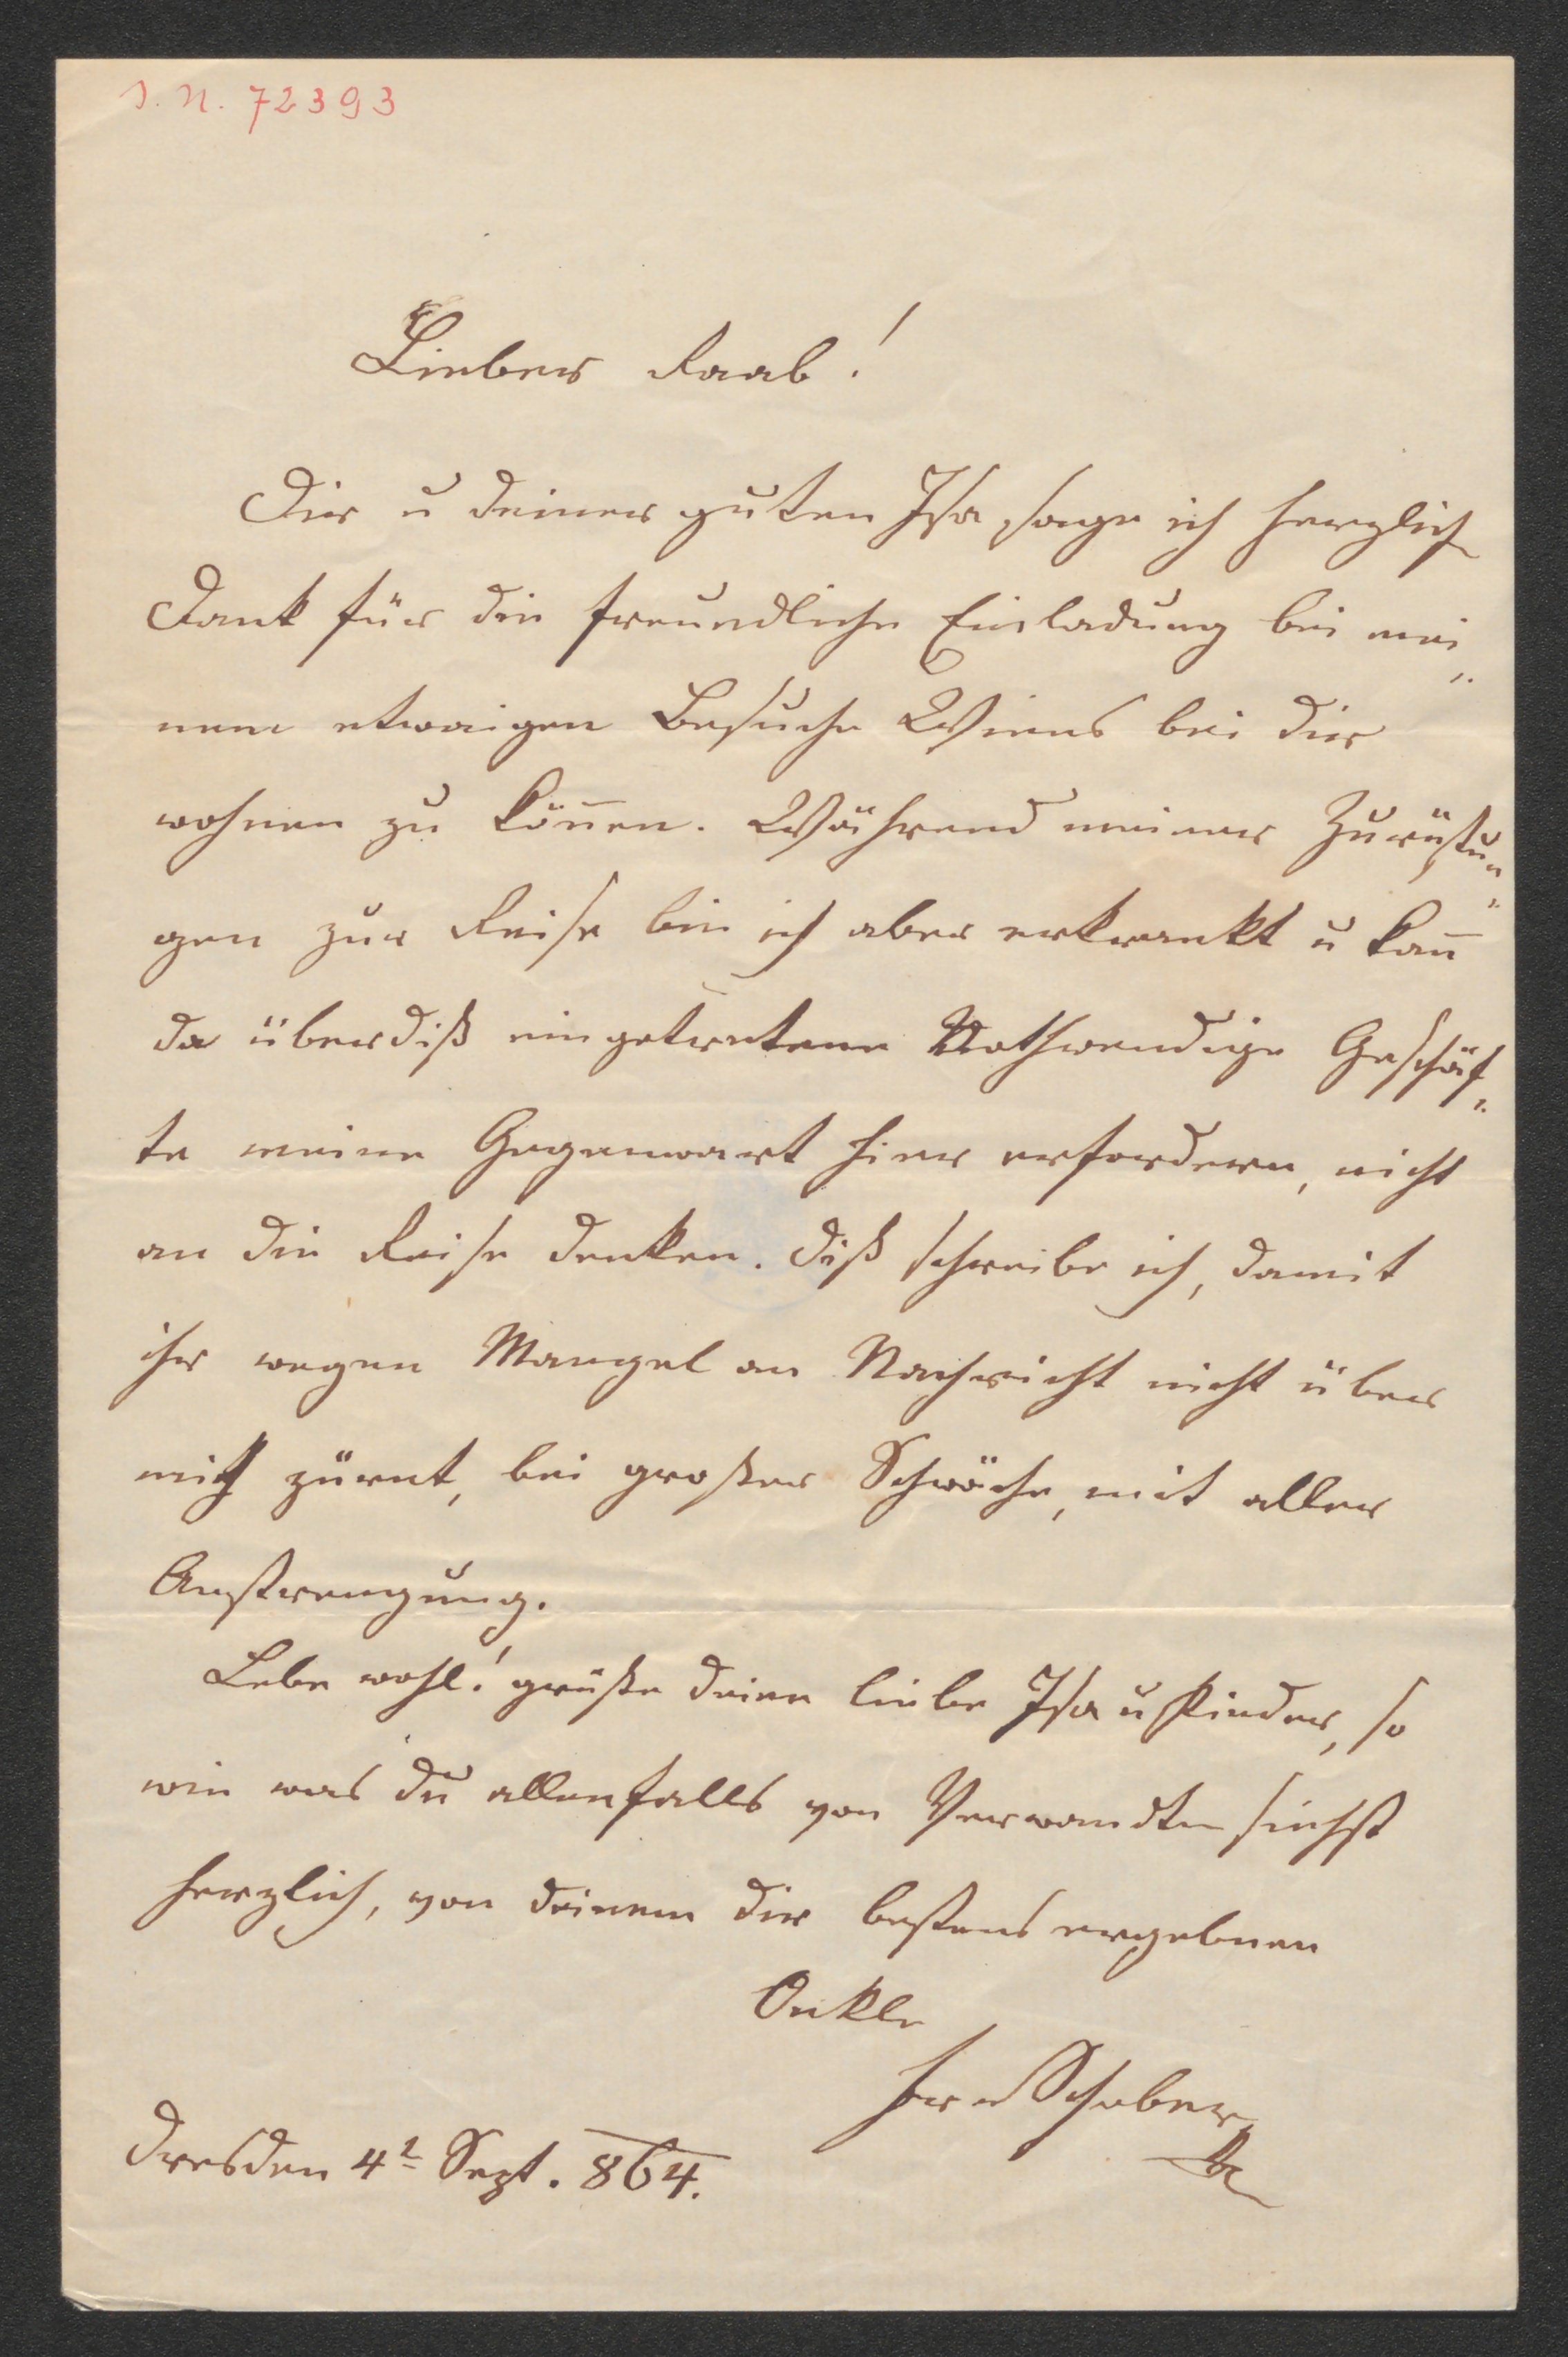 I. N. 72393
Lieber Raab!
Dir u deiner guten Isa, sage ich herzlich
Dank für die freundliche Einladung bei mei„
nem etwaigen Besuche Wiens bei dir
wohnen zu kön̄en. Während meiner Zurüstun„
gen zur Reise bin ich aber erkrankt u kan̄
da überdiß eingetretene Nothwendige Geschäf„
te meine Gegenwart hier erfordern, nicht
an die Reise denken. Diß schreibe ich, damit
ihr wegen Mangel an Nachricht nicht über
mich zürnt, bei großer Schwäche, mit aller
Anstrengung.
Lebe wohl! grüße deine liebe Isa u Kinder, so
wie was du allenfalls von Verwandten siehst
herzlich, von deinem dir bestens ergebnen
Onkle
Fr v Schober
Dresden 4t Sept. 864.